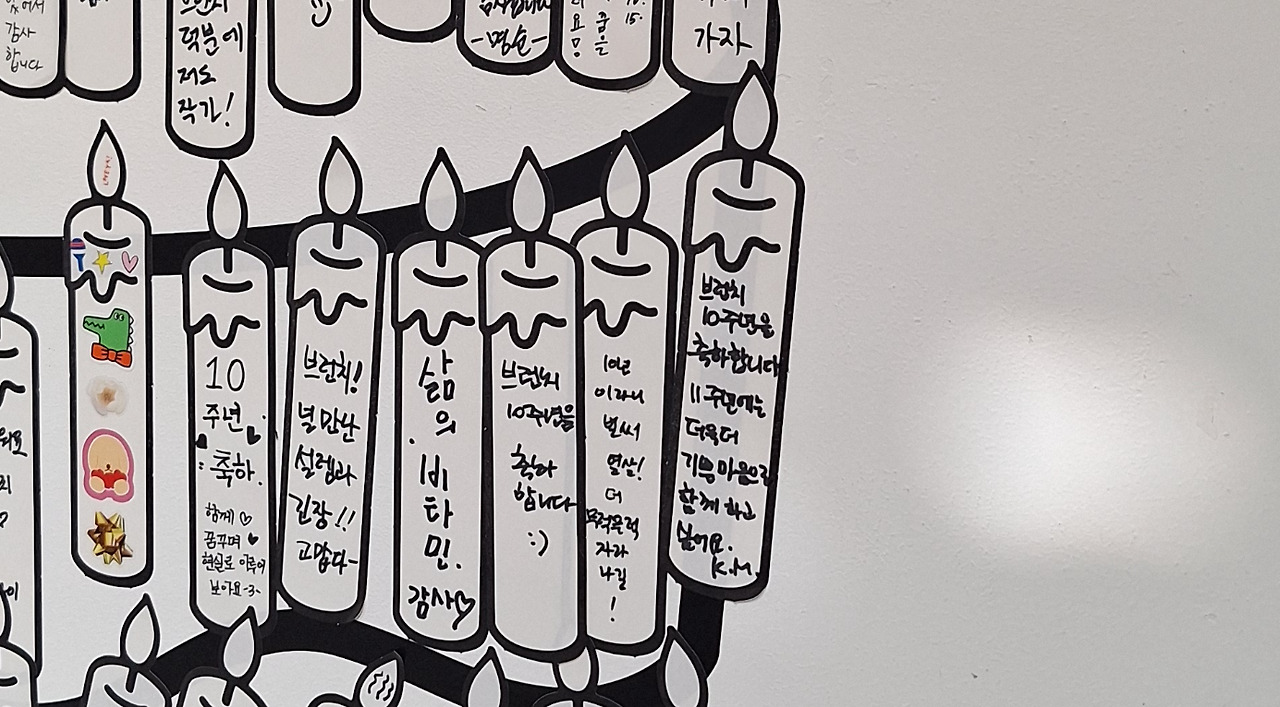 있어서
감사
합니다
덕분에
저도
작가!
-명순-
가자
10
주년
축하.
함께 ♡
꿈꾸며 ♥
현실로 이루어
보아요-3-
브런치!
널 만난
설렘과
긴장!!
고맙다~
삶
의
비
타
민.
감사♡
브런치
10주년을
축하
합니다
:)
10년
이라니
벌써
열살!
더
무럭무럭
자라
나길
!
브런치
10주년을
축하합니다
11주년에는
더욱더
기쁜 마음으로
함께 하고
싶어요.
K.M.